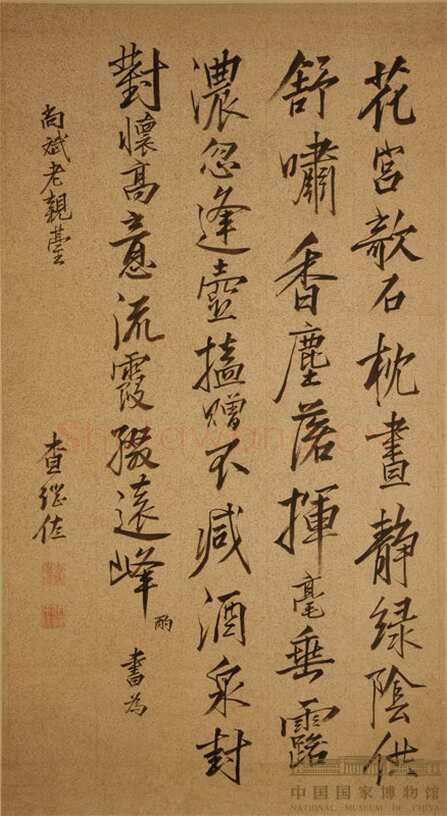 花宮欹石枕晝靜綠陰供
舒嘯香塵落揮毫垂露
濃忽逢壺榼贈不減酒泉封
對懷高意流霞綴遠峰 酌 書為
尚斌老親臺 查繼佐
中国国家博物馆
NATIONAL MUSEUM OF CHINA